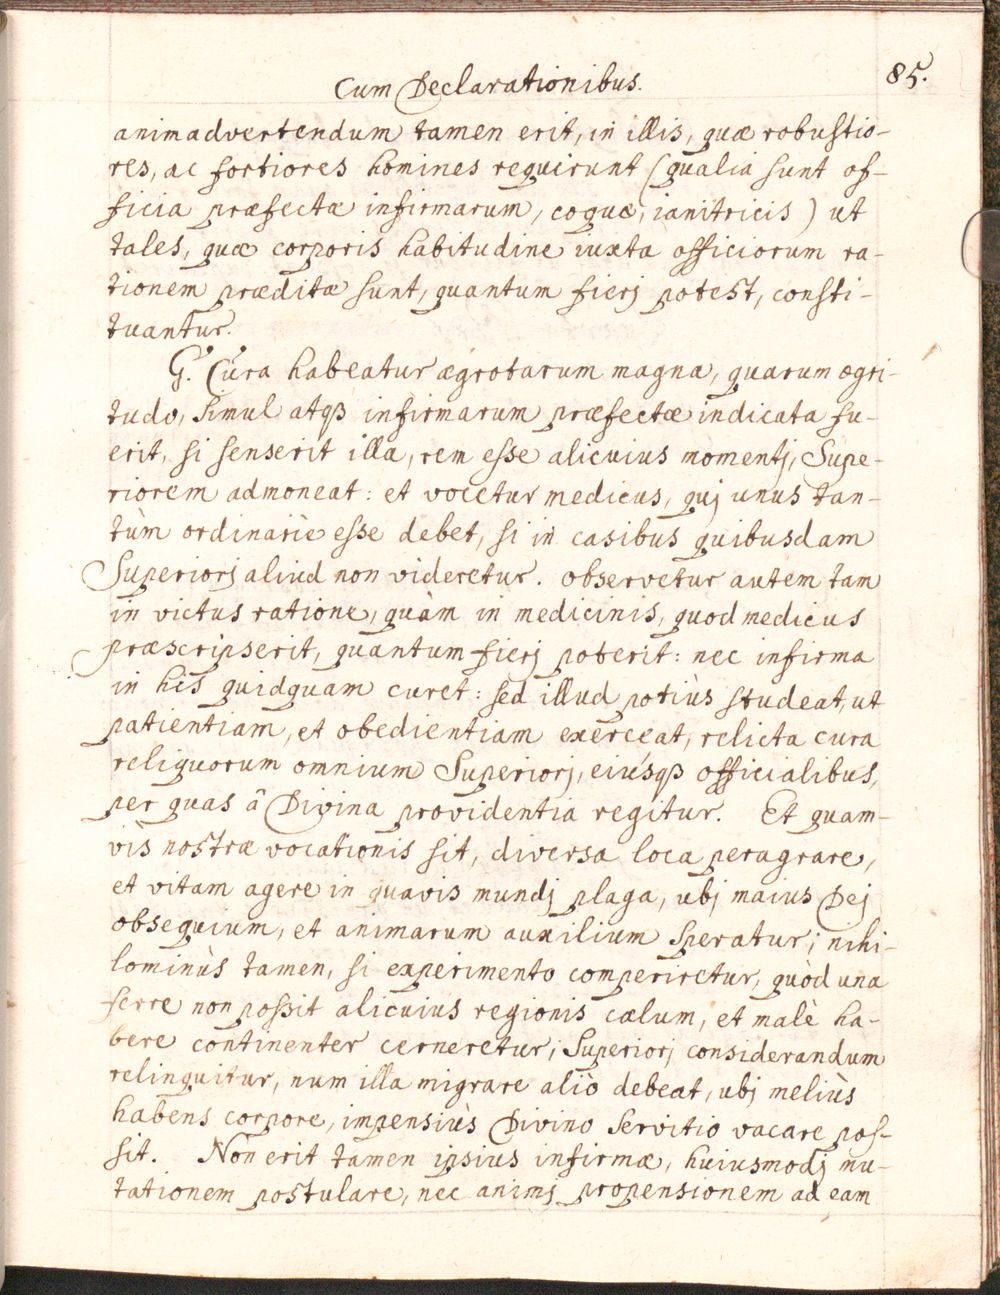 Cum Declarationibus.
85.
animadvertendum tamen erit, in illis, quæ robustio-
res, ac fortiores homines requirunt (qualia sunt of-
ficia præfectæ infirmarum, coquæ, ianitricis) ut
tales, quæ corporis habitudine iuxta officiorum ra-
tionem præditæ sunt, quantum fierj potest, consti-
tuantur.
G. Cura habeatur ægrotarum magna, quarum ægri-
tudo, simul atqß infirmarum præfectæ indicata fu-
erit, si senserit illa, rem esse alicuius momentj, Supe-
riorem admoneat: et vocetur medicus, quj unus tan-
tùm ordinariè esse debet, si in casibus quibusdam
Superiorj aliud non videretur. observetur autem tam
in victus ratione, quàm in medicinis, quod medicus
præscripserit, quantum fierj poterit: nec infirma
in his quidquam curet: sed illud potiùs studeat, ut
patientiam, et obedientiam exerceat, relicta cura
reliquorum omnium Superiorj, eiúsqß officialibus,
per quas â Divina providentia regitur. Et quam-
vis nostræ vocationis sit, diversa loca peragrare,
et vitam agere in quavis mundj plaga, ubj maius Dej
obsequium, et animarum auxilium speratur; nihi-
lominùs tamen, si experimento comperiretur, quòd una
ferre non poßit alicuius regionis cælum, et malè ha-
bere continenter cerneretur; Superiorj considerandum
relinquitur, num illa migrare aliò debeat, ubj meliùs
habens corpore, impensiùs Divino servitio vacare pos-
sit. Non erit tamen ipsius infirmæ, huiusmodj mu-
tationem postulare, nec animj propensionem ad eam